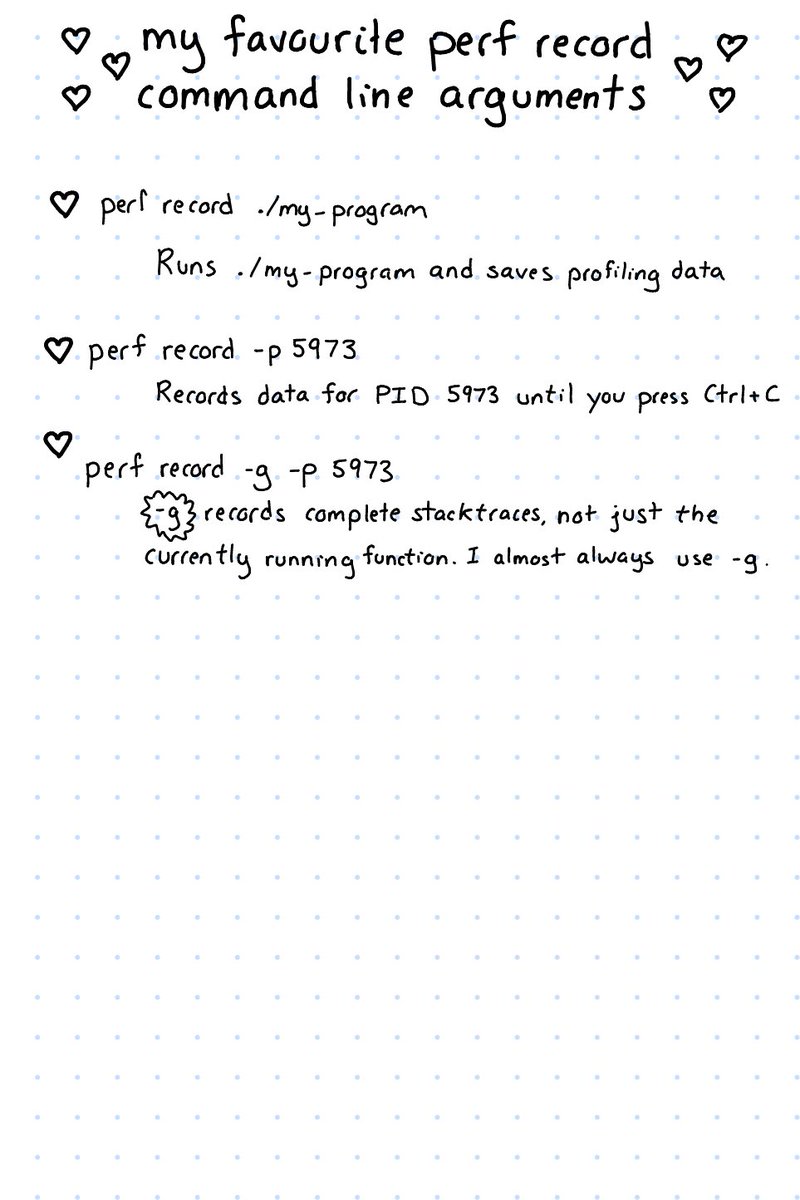 my favourite perf record
command line arguments
perf record ./my-program
Runs ./my-program and saves profiling data
perf record -p 5973
Records data for PID 5973 until you press Ctrl+C
perf record -g -p 5973
-g records complete stacktraces, not just the
currently running function. I almost always use -g.